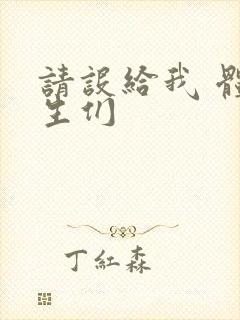 請設給我 體
生们
丁紅森